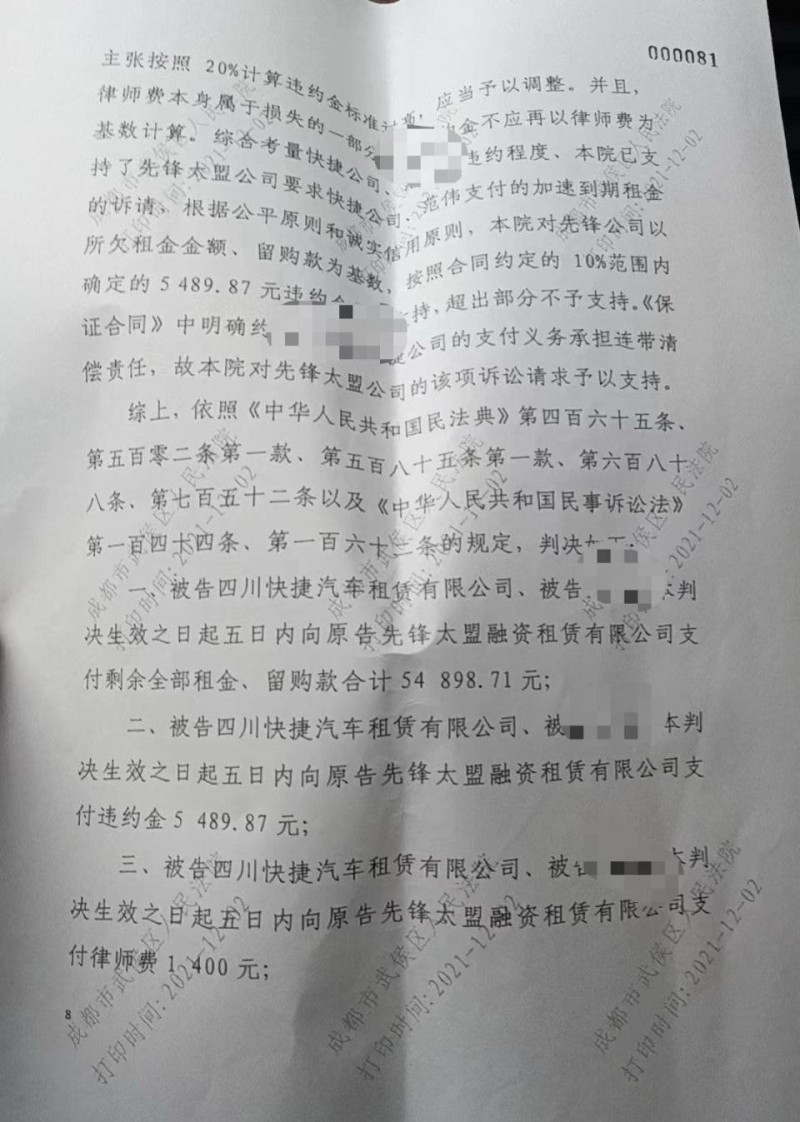 000081
主张按照 20%计算违约金标准过高，应当予以调整。并且，
律师费本身属于损失的一部分 金不应再以律师费为
基数计算。综合考量快捷公司、 违约程度、本院已支
持了先锋太盟公司要求快捷公司、范伟支付的加速到期租金
的诉请，根据公平原则和诚实信用原则，本院对先锋公司以
所欠租金金额、留购款为基数，按照合同约定的 10%范围内
确定的 5 489.87 元违约 支持，超出部分不予支持。《保
证合同》中明确约 公司的支付义务承担连带清
偿责任，故本院对先锋太盟公司的该项诉讼请求予以支持。
综上，依照《中华人民共和国民法典》第四百六十五条、
第五百零二条第一款、第五百八十五条第一款、第六百八十
八条、第七百五十二条以及《中华人民共和国民事诉讼法》
第一百四十四条、第一百六十二条的规定，判决如下：
一、被告四川快捷汽车租赁有限公司、被告 本判
决生效之日起五日内向原告先锋太盟融资租赁有限公司支
付剩余全部租金、留购款合计 54 898.71 元；
二、被告四川快捷汽车租赁有限公司、被 本判
决生效之日起五日内向原告先锋太盟融资租赁有限公司支
付违约金 5 489.87 元；
三、被告四川快捷汽车租赁有限公司、被告 本判
决生效之日起五日内向原告先锋太盟融资租赁有限公司支
付律师费 1 400 元；
8
成都市武侯区人民法院
打印时间：2021-12-02